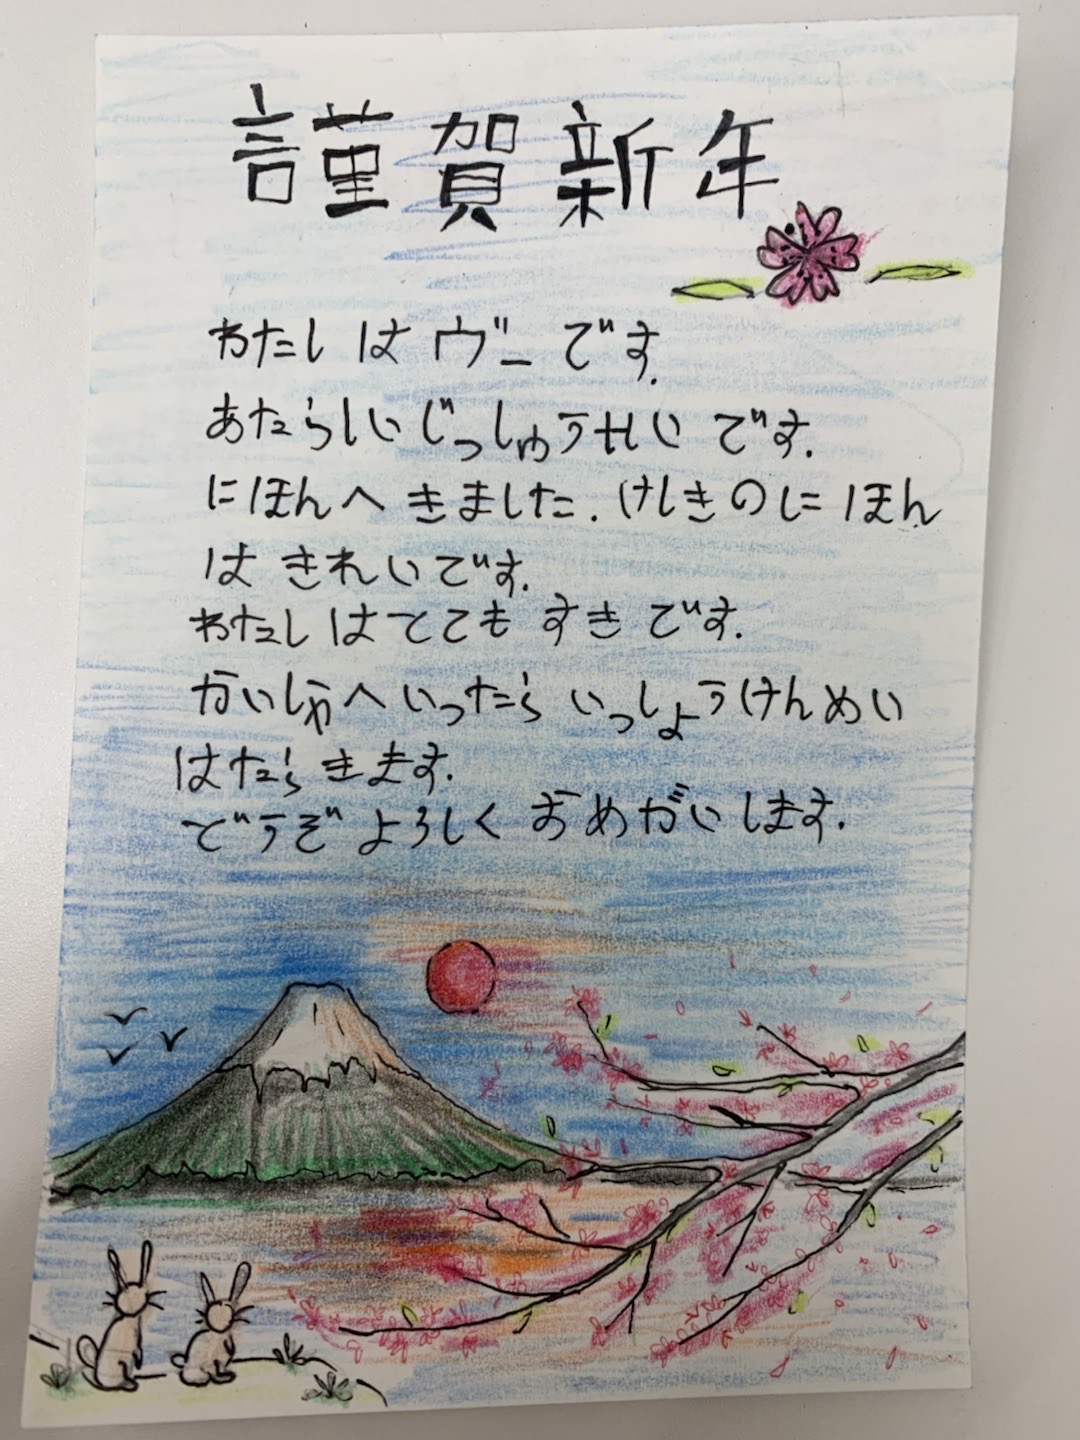 謹賀新年
わたしは ヴー です.
あたらしいじっしゅうせい です.
にほんへ きました. けしきのしに ほん
は きれいです.
わたしは とても すき です.
かいしゃへ いったら いっしょうけんめい
はたらきます.
どうぞ よろしく おめがいします.